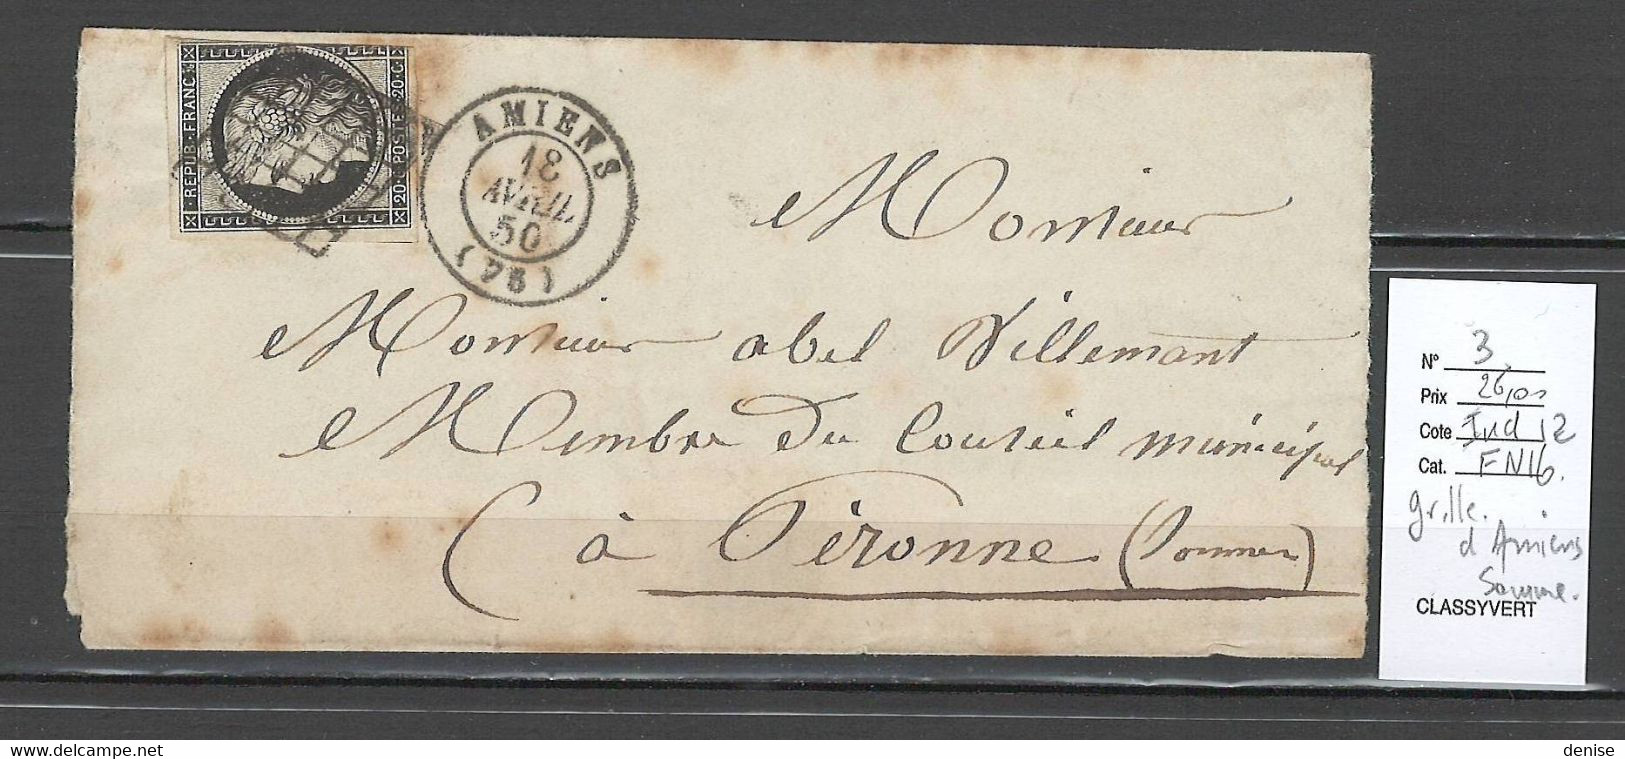 REPUB·FRANC
20·C POSTES 20·C
AMIENS
18
AVRIL
50
(76)
Monsieur
Monsieur abel Villemant
Membre du Conseil municipal
à Péronne (Somme)
N° 3
Prix 26,00
Cote Ind 12
Cat. FN16.
grille.
d Amiens
Somme.
CLASSYVERT
www.delcampe.net
denise